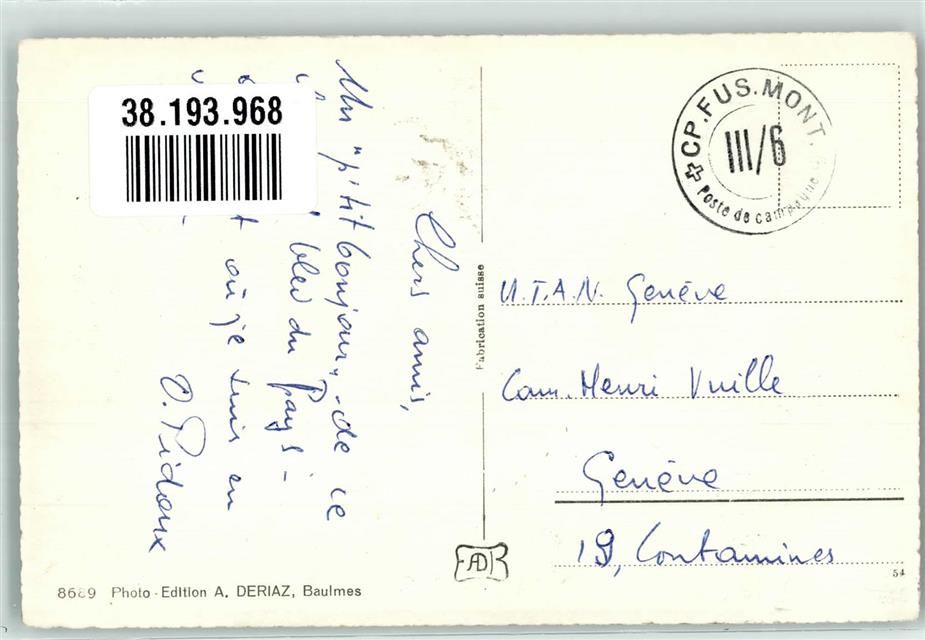 38.193.968
Chers amis,
Un "p'tit bonjour" de ce
bleu du Pays -
où je suis en
O. Pidoux
CP. FUS. MONT.
III/6
Poste de campagne
U.T.A.N. Genève
Cam. Henri Vuille
Genève
19, Contamines
Fabrication suisse
54
Photo - Edition A. DERIAZ, Baulmes